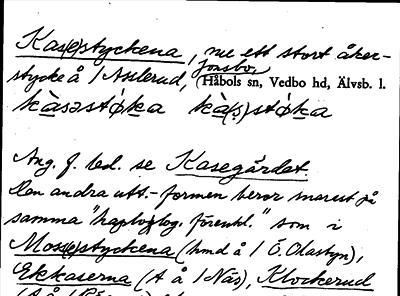 Kas(e)styckena, nu ett stort åker-
Jonsbo,
stycke å 1 Asslerud, (Håbols sn, Vedbo hd, Älvsb. l.
kàsəstø̀ka kà(s)støka
Ang. f. led. se Kasegärdet.
Den andra utt.-formen beror snarast på
samma "haplolog. förenkl." som i
Mos(e)styckena (hmd å 1 Ö. Olastyn),
Ekkaserna (A å 1 Näs), Klockerud
(A å 1